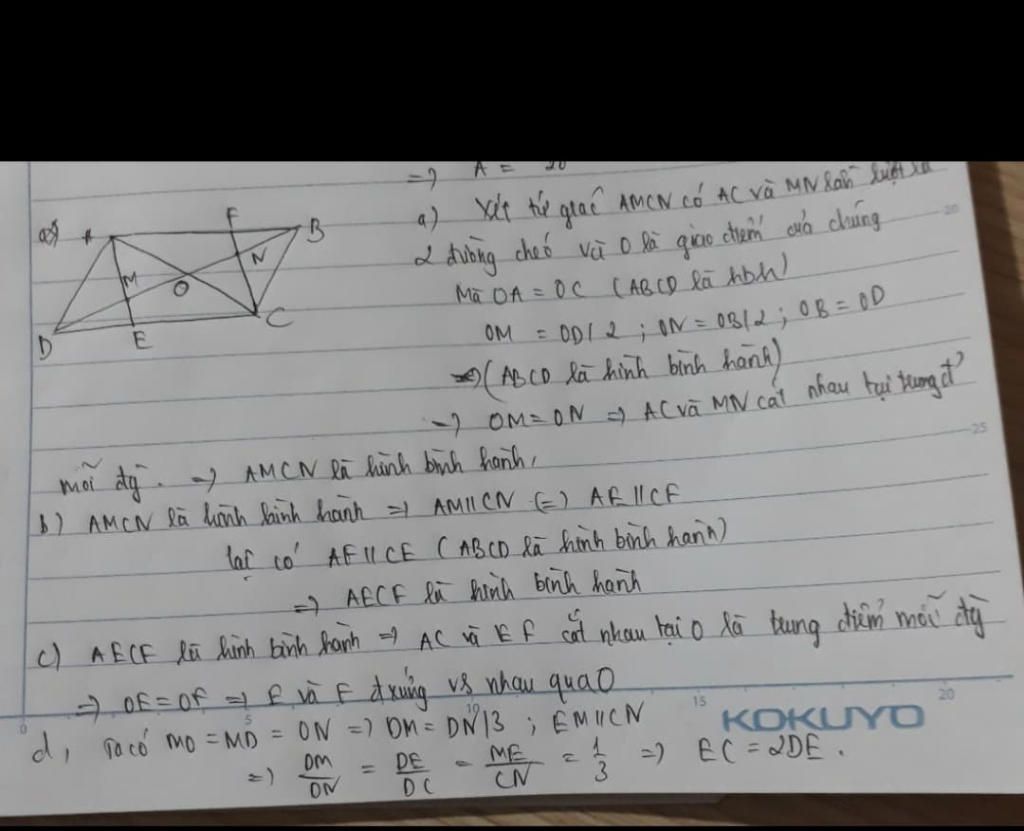 => A = 20
a) Xét tứ giác AMCN có AC và MN lần lượt là
a) A F B
2 đường chéo và O là giao điểm của chúng
M O N
Mà OA = OC (ABCD là hbh)
D E C
OM = OD/2 ; ON = OB/2 ; OB = OD
(ABCD là hình bình hành)
=> OM = ON => AC và MN cắt nhau tại trung đ'
mỗi đg. => AMCN là hình bình hành,
b) AMCN là hình bình hành => AM//CN (=) AE//CF
lại có AF//CE (ABCD là hình bình hành)
=> AECF là hình bình hành
c) AECF là hình bình hành => AC và EF cắt nhau tại O là trung điểm mỗi đg
=> OE = OF => E và F đ xứng vs nhau qua O
d, Ta có MO = MD = ON => DM = DN/3 ; EM//CN
=> DM/DN = DE/DC = ME/CN = 1/3 => EC = 2DE.
0 5 10 15 20
KOKUYO
20
25